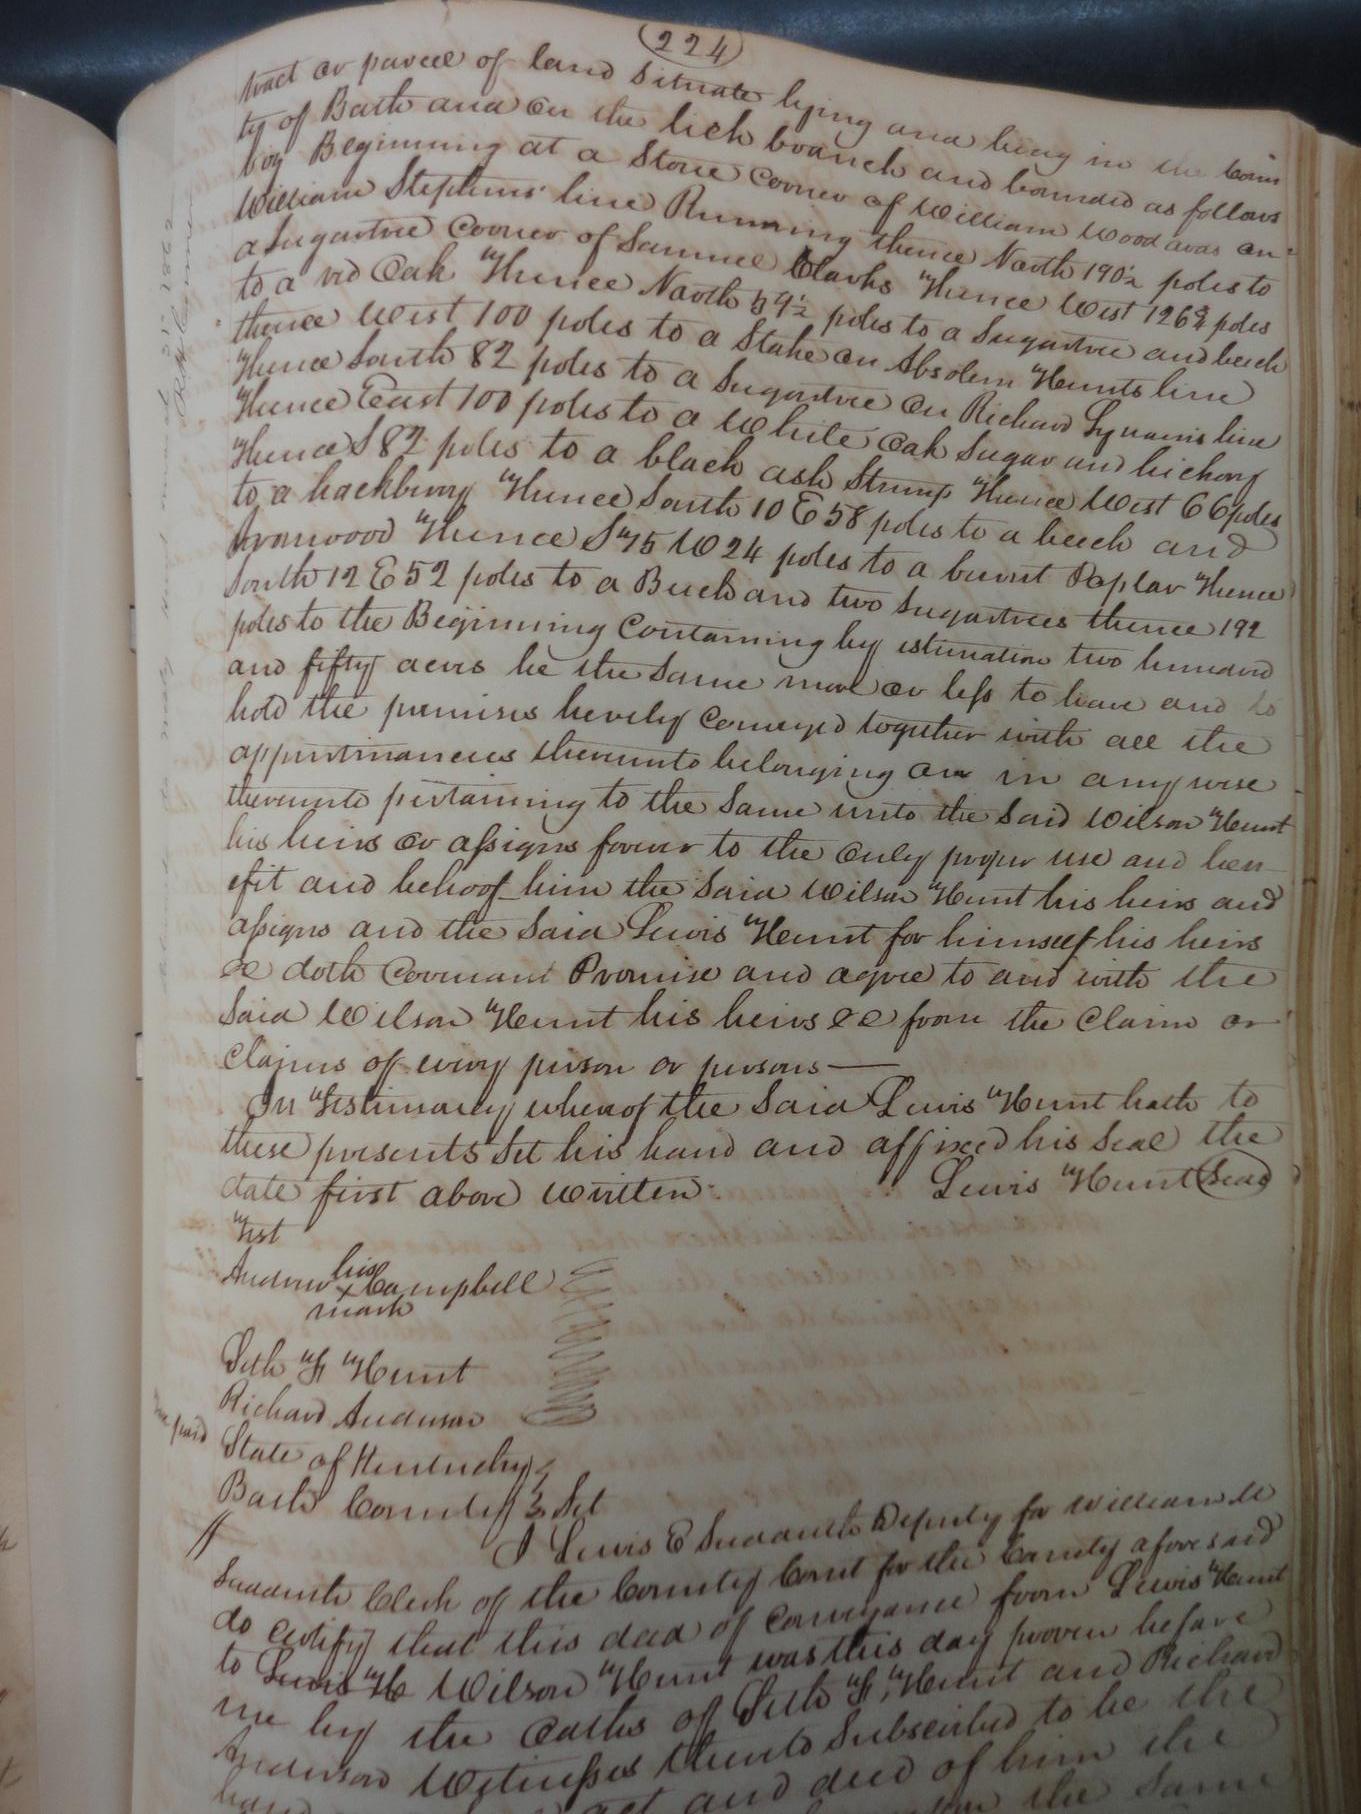 224
tract or parcel of land situate lying and being in the Coun
ty of Bath and on the lick branch and bounded as follows
viz Beginning at a Stone Corner of William Woodards on
William Stephens' line Running thence North 190½ poles to
a Sugartree Corner of Samuel Clarks Thence West 126¾ poles
to a red Oak Thence North 59½ poles to a Sugartree and beech
thence West 100 poles to a Stake on Absolem Hunts line
Thence South 82 poles to a Sugartree on Richard line
Thence East 100 poles to a White Oak Sugar and hickory
Thence S 82 poles to a black ash Stump Thence West 66 poles
to a hackberry Thence South 10 E 58 poles to a beech and
Ironwood Thence S 75 W 24 poles to a burnt Poplar Thence
South 12 E 52 poles to a Buck and two Sugartrees thence 192
poles to the Beginning Containing by estimation two hundred
and fifty acres be the Same more or less to have and to
hold the premises hereby Conveyed together with all the
appurtinances thereunto belonging or in any wise
thereunto pertaining to the Same unto the Said Wilson Hunt
his heirs or assigns forever to the only proper use and ben
efit and behoof him the Said Wilson Hunt his heirs and
assigns and the Said Lewis Hunt for himself his heirs
&c doth Covenant Promise and agree to and with the
Said Wilson Hunt his heirs &c from the Claim or
Claims of every person or persons —
In Testimony whereof the Said Lewis Hunt hath to
these presents Set his hand and affixed his Seal the
date first above written Lewis Hunt Seal
Test
Andrew his x mark Campbell
Seth H Hunt
Richard Anderson
paid
State of Kentucky
Bath County Sct
I Lewis E Sudduth Deputy for William M
Sudduth Clerk of the County Court for the County aforesaid
do certify that this deed of conveyance from Lewis Hunt
to Lewis H Wilson Hunt was this day proven before
me by the Oaths of Seth H. Hunt and Richard
Anderson Witnesses thereto Subscribed to be the
act and deed of him the
the Same